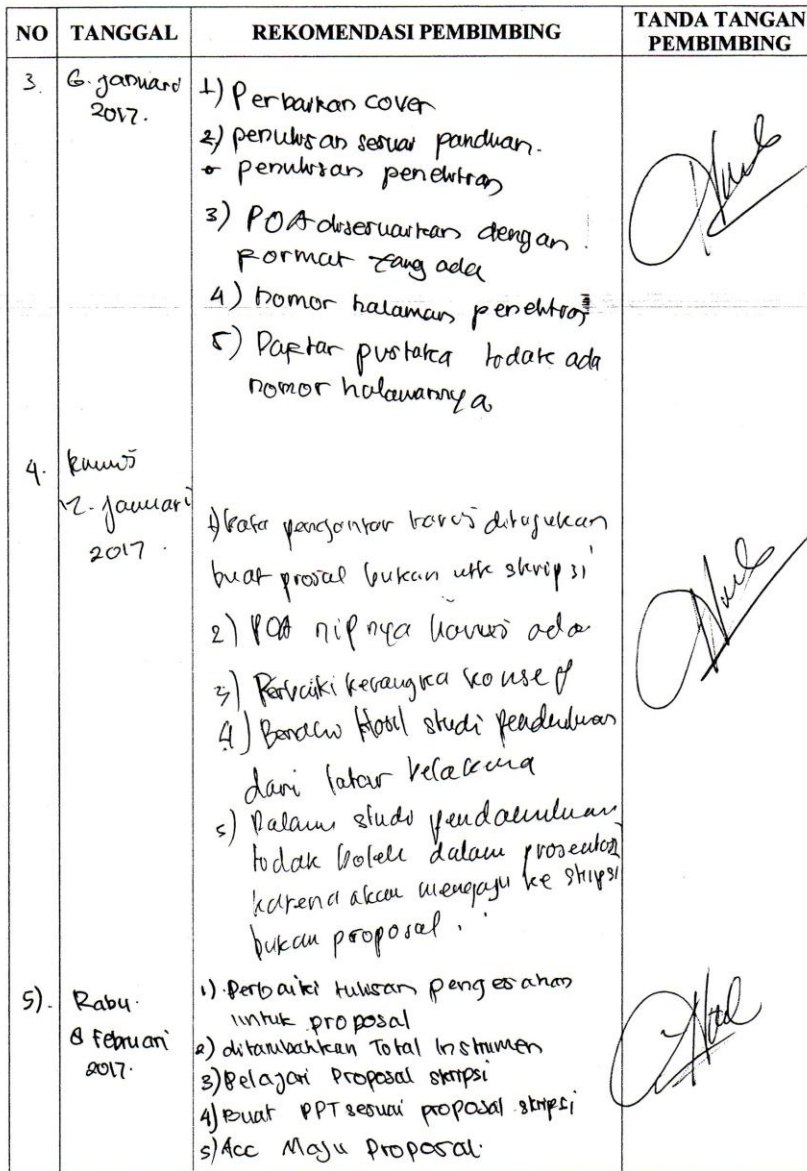 NO TANGGAL REKOMENDASI PEMBIMBING TANDA TANGAN PEMBIMBING
3. 6. januari 2017.
1) Perbaikan cover
2) penulisan sesuai panduan.
penulisan penelitian
3) POA disesuaikan dengan
format yang ada
4) nomor halaman penelitian
5) Daftar pustaka tidak ada
nomor halamannya
4. kamis
12. januari
2017.
1) kata pengantar harus ditujukan
buat prosal bukan utk skripsi
2) POA nipnya harus ada
3) Perbaiki kerangka konsep
4) Hasil studi pendahuluan
dari latar belakang
5) Dalam studi pendahuluan
tidak boleh dalam prosentasi
karena akan mengaju ke skripsi
bukan proposal.
5). Rabu.
8 Februari
2017.
1) Perbaiki tulisan pengesahan
untuk proposal
2) ditambahkan Total Instrumen
3) Pelajari Proposal skripsi
4) Buat PPT sesuai proposal skripsi
5) Acc Maju Proposal.